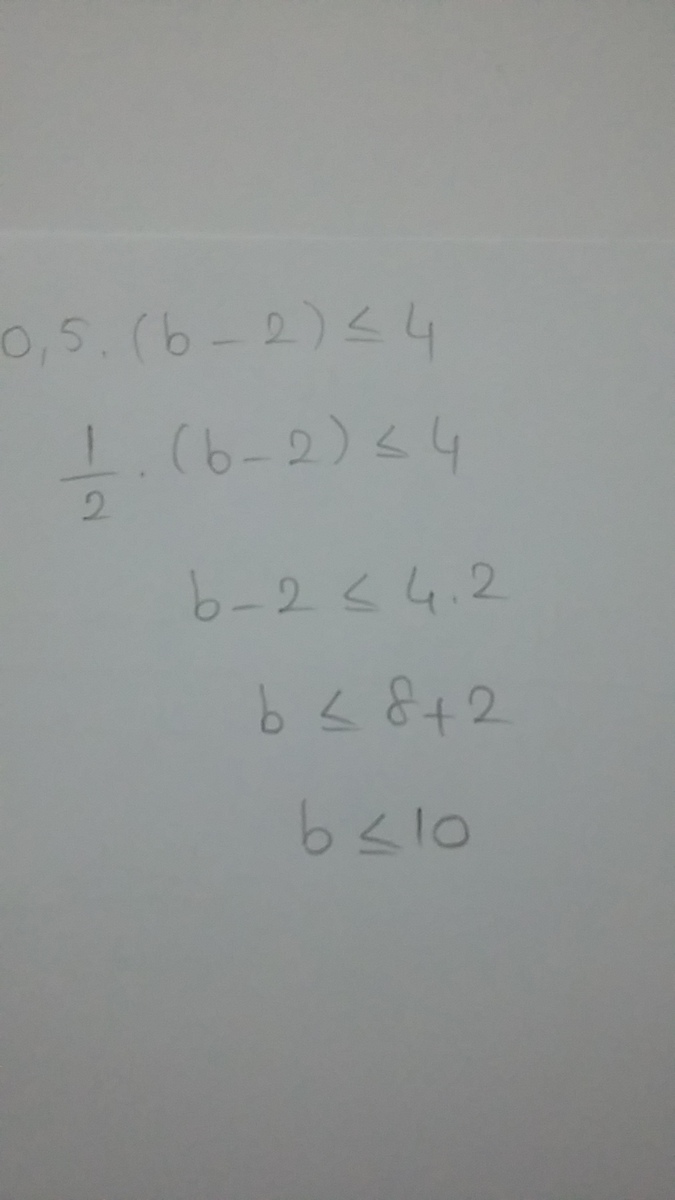 0,5.(b-2)≤4
1/2.(b-2)≤4
b-2≤4.2
b≤8+2
b≤10